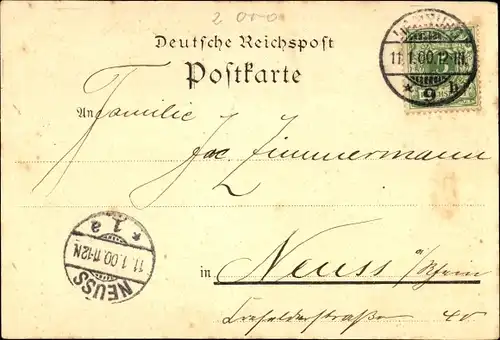 2 0-0
Deutsche Reichspost
Postkarte
11.1.00.12-1N.
* 9 h
An Familie
Jac Zimmermann
11.1.00.11-12N.
* 1 a
NEUSS
in Neuss a/Rhein
Crefelderstraße 40